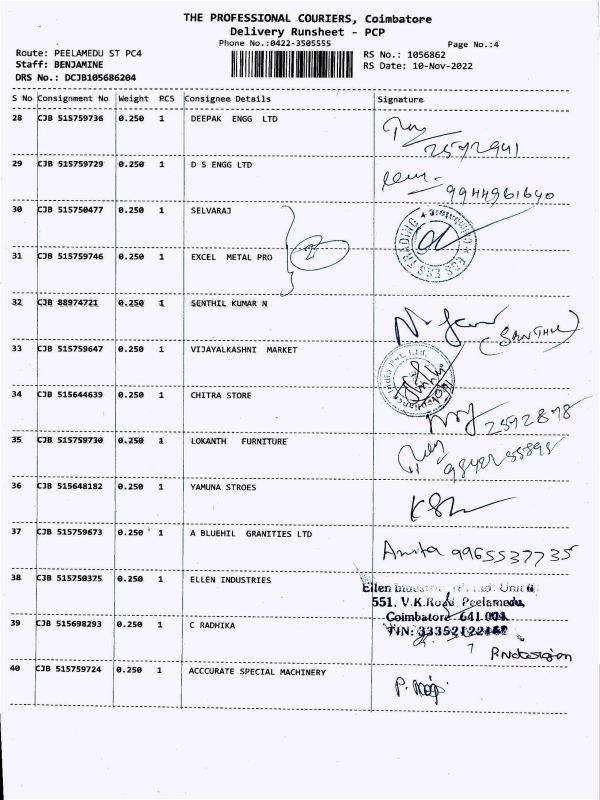 THE PROFESSIONAL COURIERS, Coimbatore
Delivery Runsheet - PCP
Phone No.:0422-3505555
Page No.:4
Route: PEELAMEDU ST PC4
RS No.: 1056862
Staff: BENJAMINE
RS Date: 10-Nov-2022
DRS No.: DCJB105686204
S No Consignment No Weight PCS Consignee Details Signature
28 CJB 515759736 0.250 1 DEEPAK ENGG LTD
2572941
29 CJB 515759729 0.250 1 D S ENGG LTD
9944961640
30 CJB 515750477 0.250 1 SELVARAJ
ESS ESS TRADING ★ Coimbatore ★
31 CJB 515759746 0.250 1 EXCEL METAL PRO
32 CJB 88974721 0.250 1 SENTHIL KUMAR N
33 CJB 515759647 0.250 1 VIJAYALKASHNI MARKET
India Pvt. Ltd.
34 CJB 515644639 0.250 1 CHITRA STORE
2592878
35 CJB 515759730 0.250 1 LOKANTH FURNITURE
36 CJB 515648182 0.250 1 YAMUNA STROES
37 CJB 515759673 0.250 1 A BLUEHIL GRANITIES LTD
Amita 9965537735
38 CJB 515750375 0.250 1 ELLEN INDUSTRIES
Ellen Ltd. Unit
551, V.K.Road Peelamedu,
Coimbatore 641 004.
39 CJB 515698293 0.250 1 C RADHIKA
TIN: 33352122462
40 CJB 515759724 0.250 1 ACCCURATE SPECIAL MACHINERY